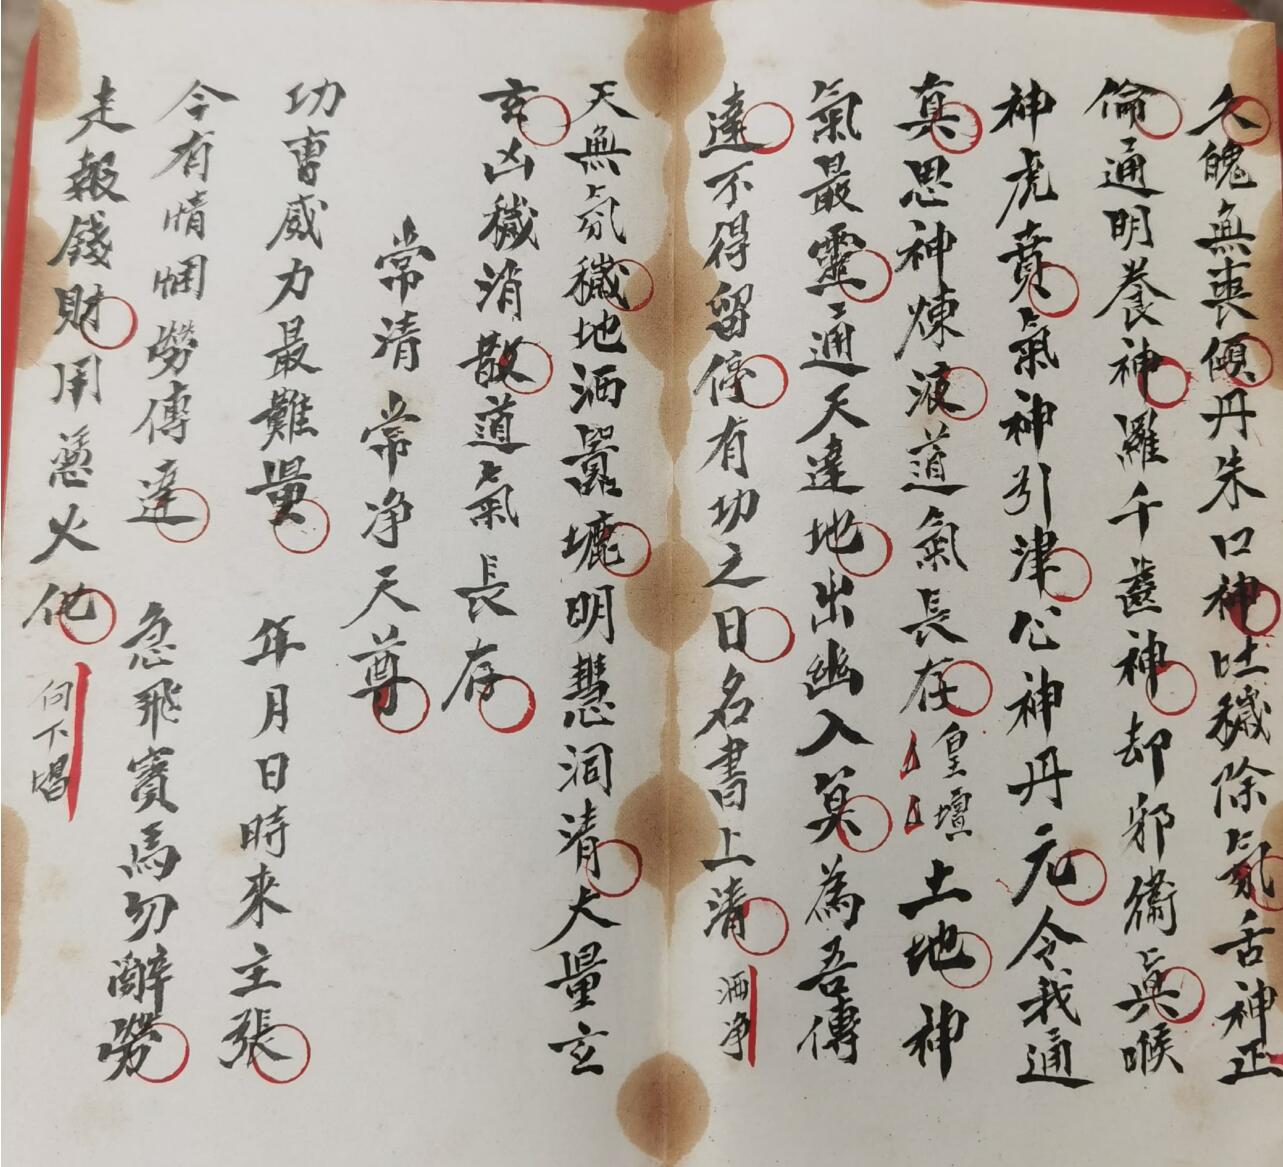 久魄無喪傾丹朱口神吐穢除氛舌神正
倫通明養神羅千齒神却邪衛真喉
神虎賁氣神引津心神丹元令我通
真思神煉液道氣長存皇壇土地神
氣最靈通天達地出幽入冥為吾傳
達不得留停有功之日名書上清洒净
天無氛穢地洒囂塵明慧洞清大量玄
玄凶穢消散道氣長存
常清常净天尊
功曹威力最難量年月日時來主張
今有情悃勞傳達急飛寶馬勿辭勞
走報錢財用憑火化
何下唱